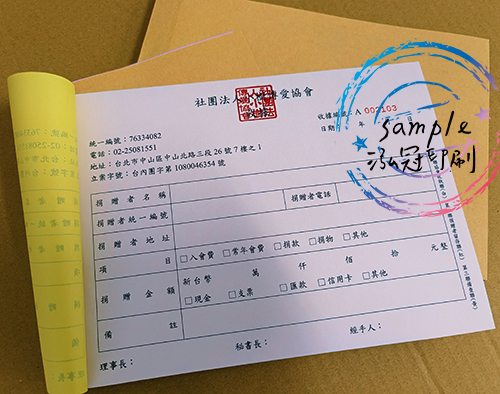 社團法人 愛協會
收據編號：A 002103
日期： 年 月 日
統一編號：76334082
電話：02-25081551
地址：台北市中山區中山北路三段26號7樓之1
立案字號：台內團字第1080046354號
捐贈者名稱
捐贈者電話
捐贈者統一編號
捐贈者地址
項目 □入會費 □常年會費 □捐款 □捐物 □其他
捐贈金額 新台幣 萬 仟 佰 拾 元整
□現金 □支票 □匯款 □信用卡 □其他
備註
理事長： 秘書長： 經手人：
sample
泓冠印刷